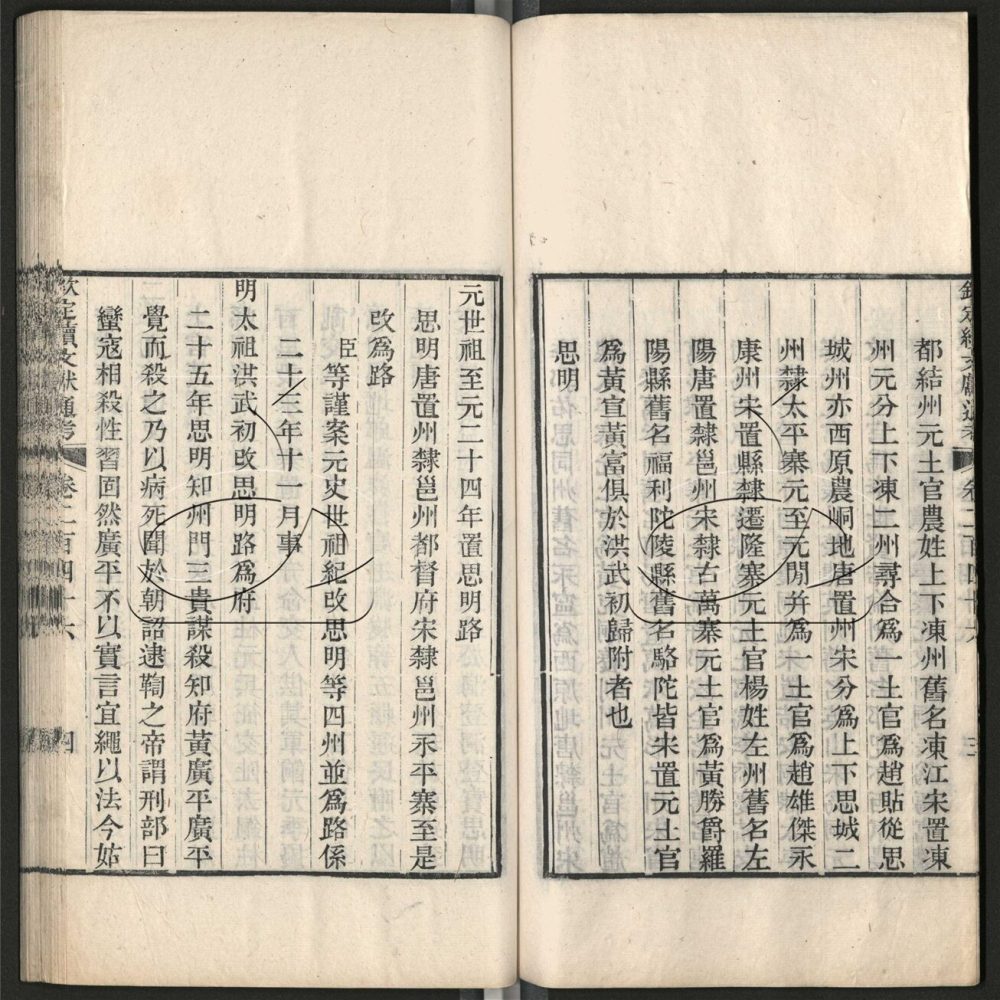 欽定續文獻通考 卷二百四十六 三
都結州元土官農姓上下凍州舊名凍江宋置凍
州元分上下凍二州尋合爲一土官爲趙貼從思
城州亦西原農峒地唐置州宋分爲上下思城二
州隸太平寨元至元閒并爲一土官爲趙雄傑永
康州宋置縣隸遷隆寨元土官楊姓左州舊名左
陽唐置隸邕州宋隸古萬寨元土官爲黃勝爵羅
陽縣舊名福利陀陵縣舊名駱陀皆宋置元土官
爲黃宣黃富俱於洪武初歸附者也
思明
元世祖至元二十四年置思明路
思明唐置州隸邕州都督府宋隸邕州永平寨至是
改爲路
臣等謹案元史世祖紀改思明等四州並爲路係
二十三年十一月事
明太祖洪武初改思明路爲府
二十五年思明知州門三貴謀殺知府黃廣平廣平
覺而殺之乃以病死聞於朝詔逮鞫之帝謂刑部曰
蠻寇相殺性習固然廣平不以實言宜繩以法今姑
欽定續文獻通考 卷二百四十六 四